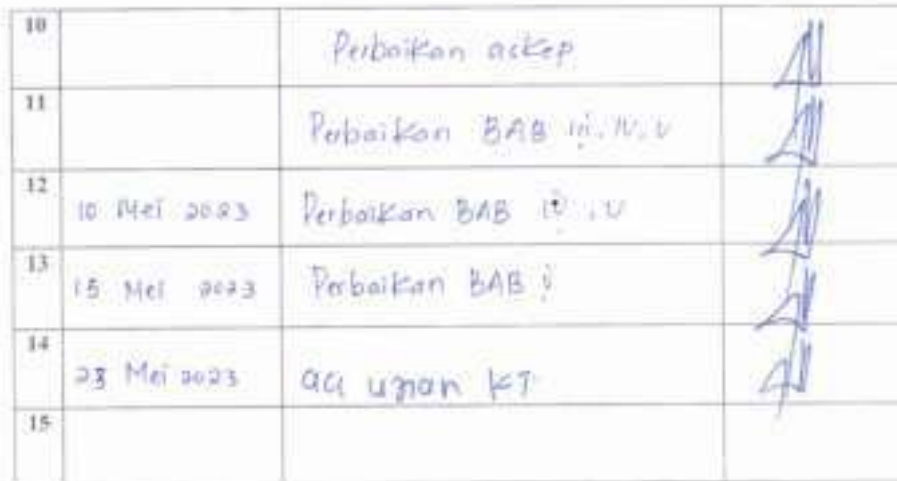 10 Perbaikan askep
11 Perbaikan BAB iii, IV, V
12 10 Mei 2023 Perbaikan BAB iv, V
13 15 Mei 2023 Perbaikan BAB i
14 23 Mei 2023 acc ujian KTI
15